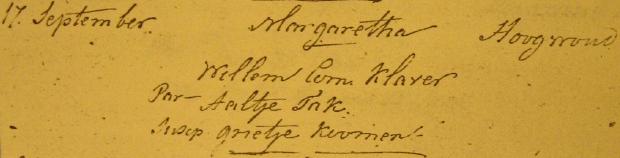 17. September. Margaretha Hoogwoud
Willem Corn. Klaver
Par- Aaltje Tak.
Susep. grietje Koomen